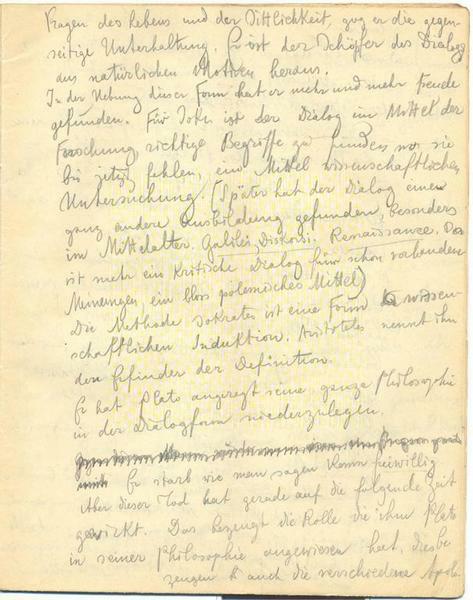 Fragen des Lebens und der Sittlichkeit, zog er die gegen-
seitige Unterhaltung. Er ist der Schöpfer des Dialogs
aus natürlichen Motiven heraus.
In der Uebung dieser Form hat er mehr und mehr Freude
gefunden. Für Sokr. ist der Dialog ein Mittel der
Forschung richtige Begriffe zu finden wo sie
bis jetzt fehlen, ein Mittel wissenschaftlicher
Untersuchung. (Später hat der Dialog eine
ganz andere Ausbildung gefunden, besonders
im Mittelalter, Galilei, Diskorsi. Renaissance. Das
ist mehr ein kritische Dialog für schon vorhandene
Meinungen, ein blos polemisches Mittel)
Die Methode Sokrates ist eine Form wissen-
schaftlichen Induktion. Aristoteles nennt ihn
den Erfinder der Definition.
Er hat Plato angeregt seine ganze Philosophie
in der Dialogform niederzulegen.
Er starb wie man sagen kann freiwillig
Aber dieser Tod hat gerade auf die folgende Zeit
gewirkt. Das bezeugt die Rolle die ihm Plato
in seiner Philosophie angewiesen hat, dies be
zeugen auch die verschiedene Apolo